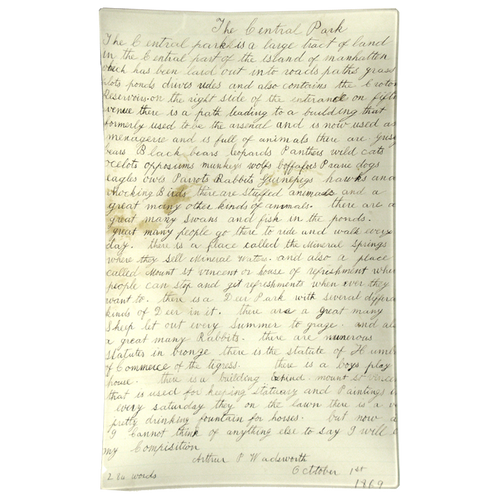 The Central Park
The Central park is a large tract of land
in the Central part of the island of manhatten
which has been laid out into roads paths grass
plots ponds drives rides and also contains the Croton
Reservoir on the right side of the entrance on fifth
venue there is a path leading to a building that
formerly used to be the arsenal and is now used as
menagerie and is full of animals there are
bears Black bears leopards Panthers wild cats
ocelots oppossums munkeys wolfs boffaloes Prarie dogs
eagles owls Parrots Rabbits hawks and
Mocking Birds there are Stuffed animals and a
great many other kinds of animals. there are a
great many Swans and fish in the ponds.
great many people go there to ride and walk every
day. there is a place called the Mineral Springs
where they sell Mineral Water. and also a place
called Mount St vincent or house of refreshment where
people can stop and get refreshments when ever they
want to. there is a Deer Park with several different
kinds of Deer in it. there are a great many
sheep let out every Summer to graze. and also
a great many Rabbits. there are numerous
statutes in bronze there is the statute of
of Commerce of the tigress. there is a boys play
house. there is a building behind mount st
that is used for keeping statuary and Paintings
every saturday they on the lawn there is a
pretty drinking fountain for horses. but now as
I cannot think of anything else to say I will
my Compisition
Arthur P Wadsworth
words October 1st
1869